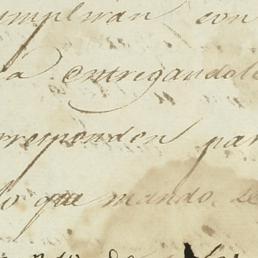 cumplirán con
rá entregandole
rresponden par
lo que mando se